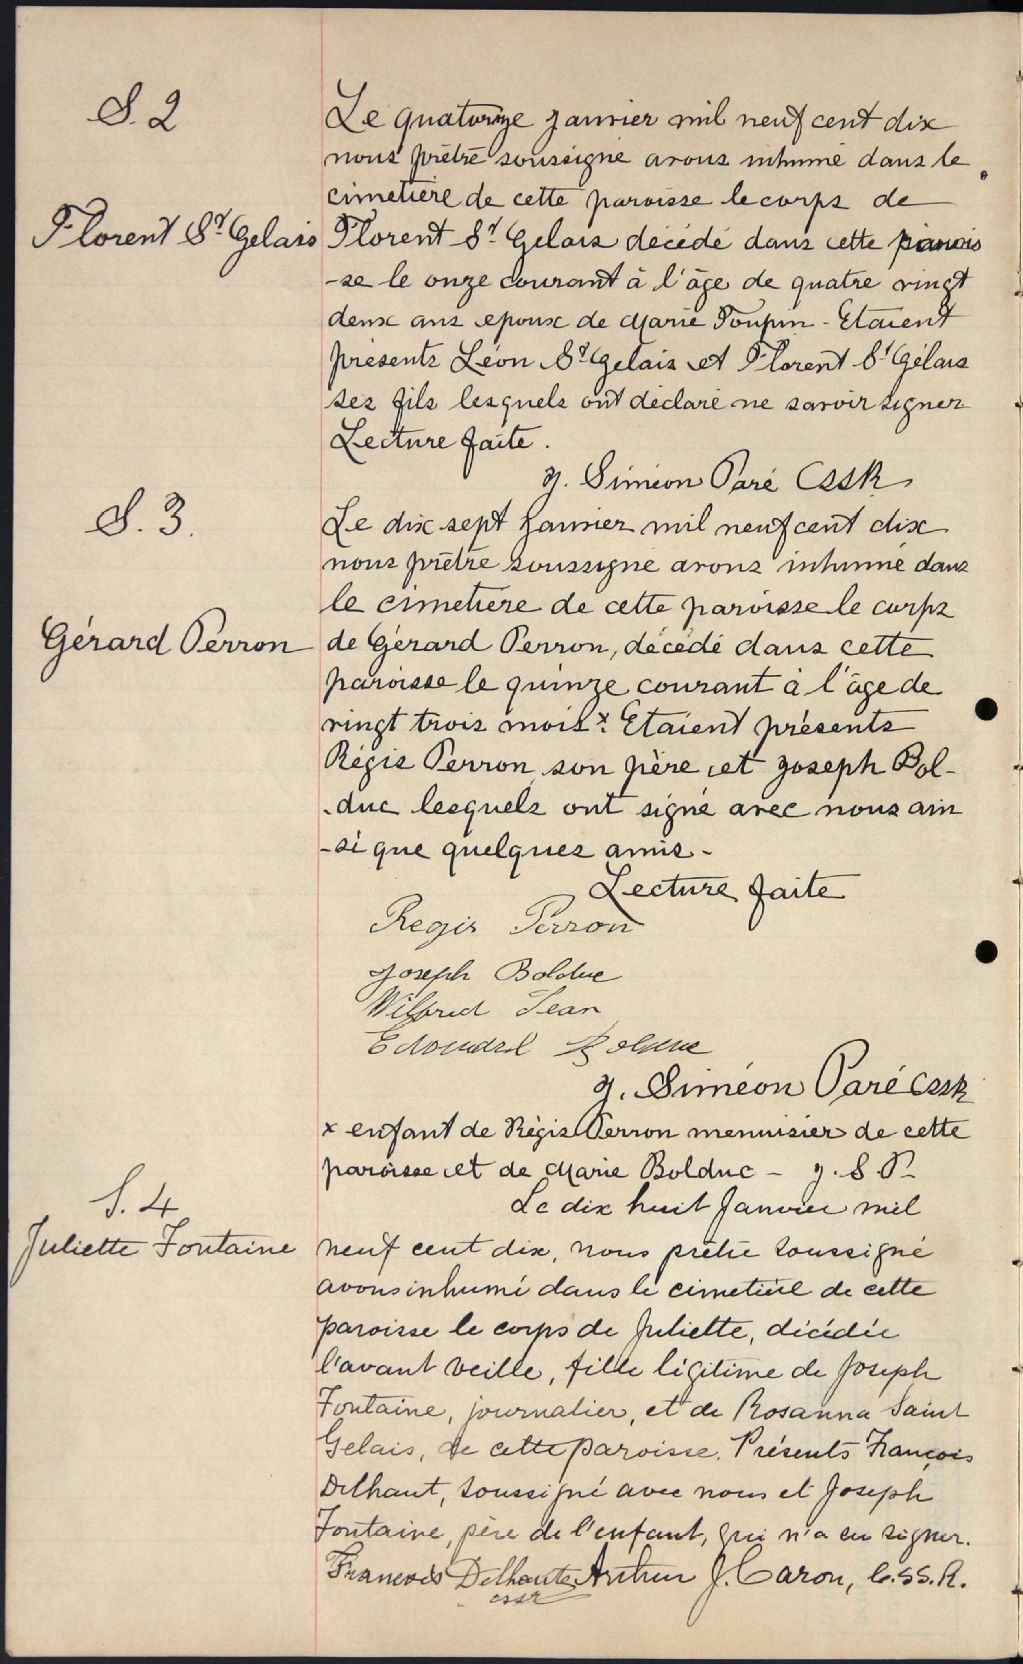 S. 2
Le quatorze janvier mil neuf cent dix
nous prêtre soussigné avons inhumé dans le
cimetière de cette paroisse le corps de
Florent St Gelais
Florent St Gelais décédé dans cette parois
-se le onze courant à l'âge de quatre vingt
deux ans epoux de Marie Toupin - Etaient
présents Léon St Gelais et Florent St Gélais
ses fils lesquels ont déclaré ne savoir signer
Lecture faite.
J. Siméon Paré CSSR
S. 3.
Le dix sept janvier mil neuf cent dix
nous prêtre soussigné avons inhumé dans
le cimetière de cette paroisse le corps
Gérard Perron
de Gérard Perron, décédé dans cette
paroisse le quinze courant à l'âge de
vingt trois mois x. Etaient présents
Régis Perron son père et Joseph Bol-
-duc lesquels ont signé avec nous ain
-si que quelques amis -
Lecture faite
Regis Perron
Joseph Bolduc
Wilfrid Jean
Edouard Bolduc
J. Siméon Paré CSSR
x enfant de Régis Perron menuisier de cette
paroisse et de Marie Bolduc - J. S. P.
S. 4
Le dix huit Janvier mil
Juliette Fontaine
neuf cent dix, nous prêtre soussigné
avons inhumé dans le cimetière de cette
paroisse le corps de Juliette, décédée
l'avant veille, fille légitime de Joseph
Fontaine, journalier, et de Rosanna Saint
Gelais, de cette paroisse. Présents François
Delhaut, soussigné avec nous et Joseph
Fontaine, père de l'enfant, qui n'a su signer.
François Arthur J. Caron, C.SS.R.
cssr